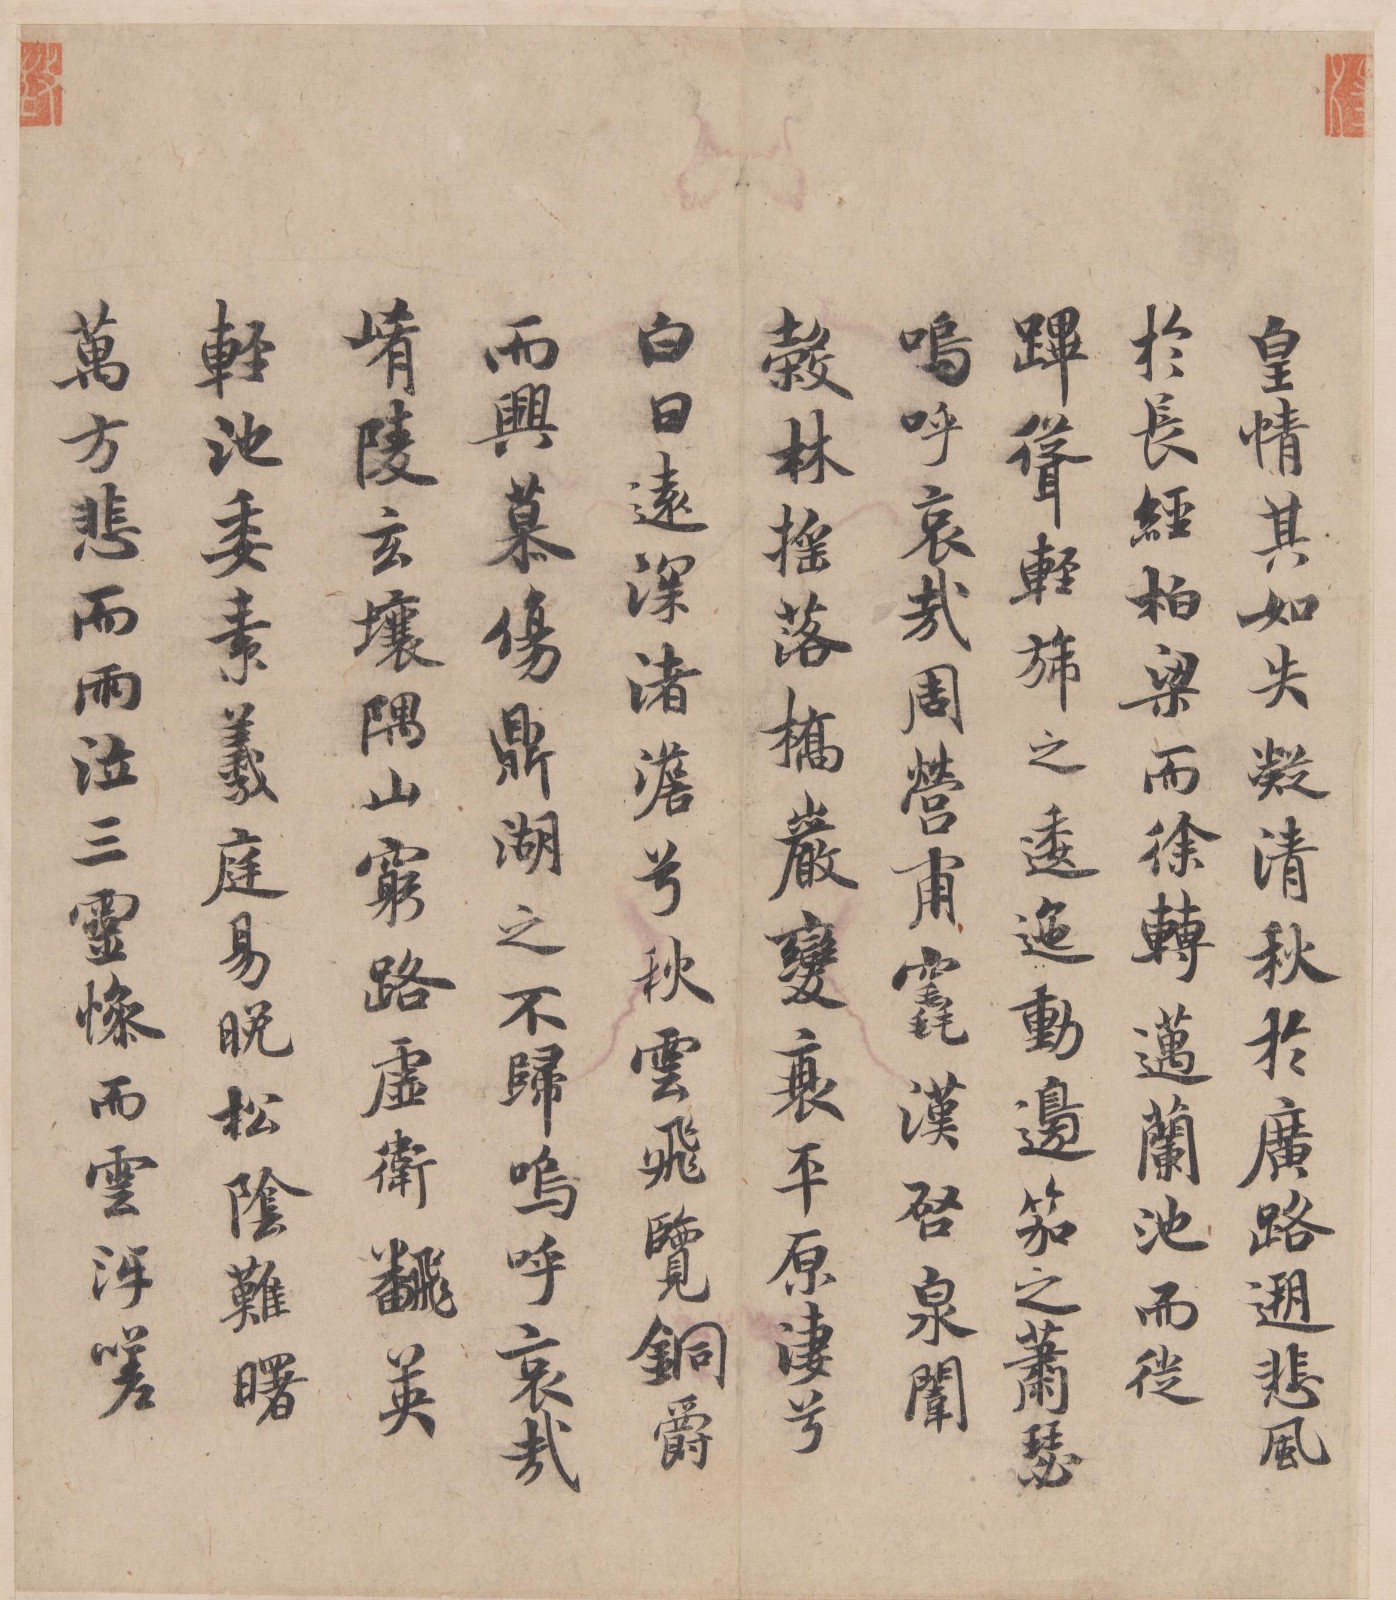 皇情其如失凝清秋於廣路遡悲風
於長經栢梁而徐轉邁蘭池而從
蹕聳輕旆之逶迤動邊笳之蕭瑟
嗚呼哀哉周營甫竁漢啓泉闈
穀林搖落橋巖變衰平原淒兮
白日遠深渚澹兮秋雲飛覽銅爵
而興慕傷鼎湖之不歸嗚呼哀哉
崤陵玄壤隅山窮路虛衛飜英
輕池委素羲庭易晩松陰難曙
萬方悲而雨泣三靈慘而雲泙嗟